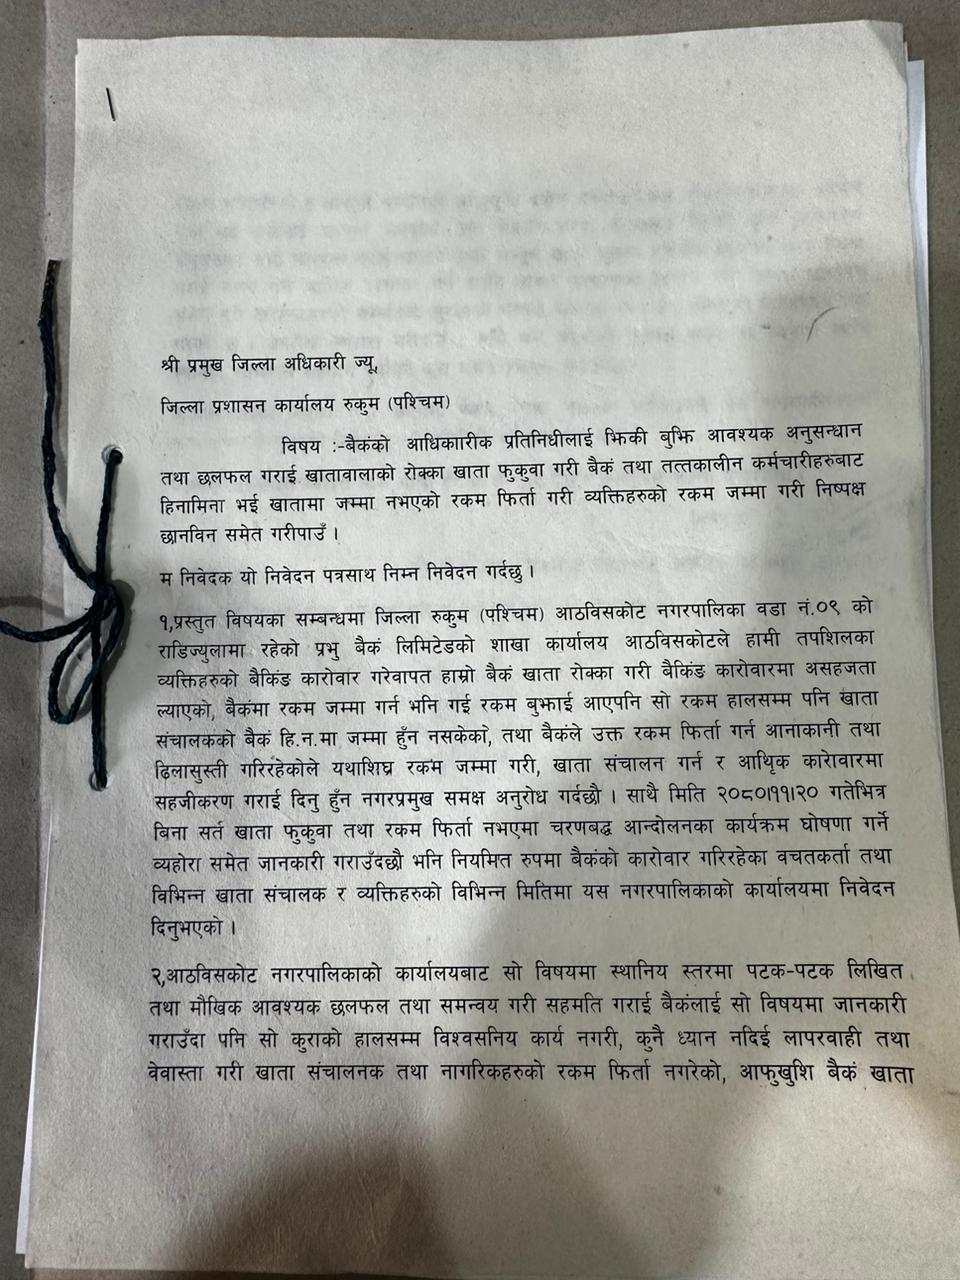 श्री प्रमुख जिल्ला अधिकारी ज्यू,
जिल्ला प्रशासन कार्यालय रुकुम (पश्चिम)
विषय :-बैकंको आधिकाारीक प्रतिनिधीलाई झिकी बुझि आवश्यक अनुसन्धान
तथा छलफल गराई खातावालाको रोक्का खाता फुकुवा गरी बैकं तथा तत्तकालीन कर्मचारीहरुबाट
हिनामिना भई खातामा जम्मा नभएको रकम फिर्ता गरी व्यक्तिहरुको रकम जम्मा गरी निष्पक्ष
छानविन समेत गरीपाउँ ।
म निवेदक यो निवेदन पत्रसाथ निम्न निवेदन गर्दछु ।
१,प्रस्तुत विषयका सम्बन्धमा जिल्ला रुकुम (पश्चिम) आठविसकोट नगरपालिका वडा नं.०९ को
राडिज्युलामा रहेको प्रभु बैकं लिमिटेडको शाखा कार्यालय आठविसकोटले हामी तपशिलका
व्यक्तिहरुको बैकिंङ कारोवार गरेवापत हाम्रो बैकं खाता रोक्का गरी बैकिंङ कारोवारमा असहजता
ल्याएको, बैकंमा रकम जम्मा गर्न भनि गई रकम बुझाई आएपनि सो रकम हालसम्म पनि खाता
संचालकको बैकं हि.न.मा जम्मा हुँन नसकेको, तथा बैकंले उक्त रकम फिर्ता गर्न आनाकानी तथा
ढिलासुस्ती गरिरहेकोले यथाशिघ्र रकम जम्मा गरी, खाता संचालन गर्न र आथिृक कारोवारमा
सहजीकरण गराई दिनु हुँन नगरप्रमुख समक्ष अनुरोध गर्दछौ । साथै मिति २०८०।११।२० गतेभित्र
बिना सर्त खाता फुकुवा तथा रकम फिर्ता नभएमा चरणबद्ध आन्दोलनका कार्यक्रम घोषणा गर्ने
व्यहोरा समेत जानकारी गराउँदछौ भनि नियमित रुपमा बैकंको कारोवार गरिरहेका वचतकर्ता तथा
विभिन्न खाता संचालक र व्यक्तिहरुको विभिन्न मितिमा यस नगरपालिकाको कार्यालयमा निवेदन
दिनुभएको ।
२,आठविसकोट नगरपालिकाको कार्यालयबाट सो विषयमा स्थानिय स्तरमा पटक-पटक लिखित
तथा मौखिक आवश्यक छलफल तथा समन्वय गरी सहमति गराई बैकंलाई सो विषयमा जानकारी
गराउँदा पनि सो कुराको हालसम्म विश्वसनिय कार्य नगरी, कुनै ध्यान नदिई लापरवाही तथा
वेवास्ता गरी खाता संचालनक तथा नागरिकहरुको रकम फिर्ता नगरेको, आफुखुशि बैकं खाता